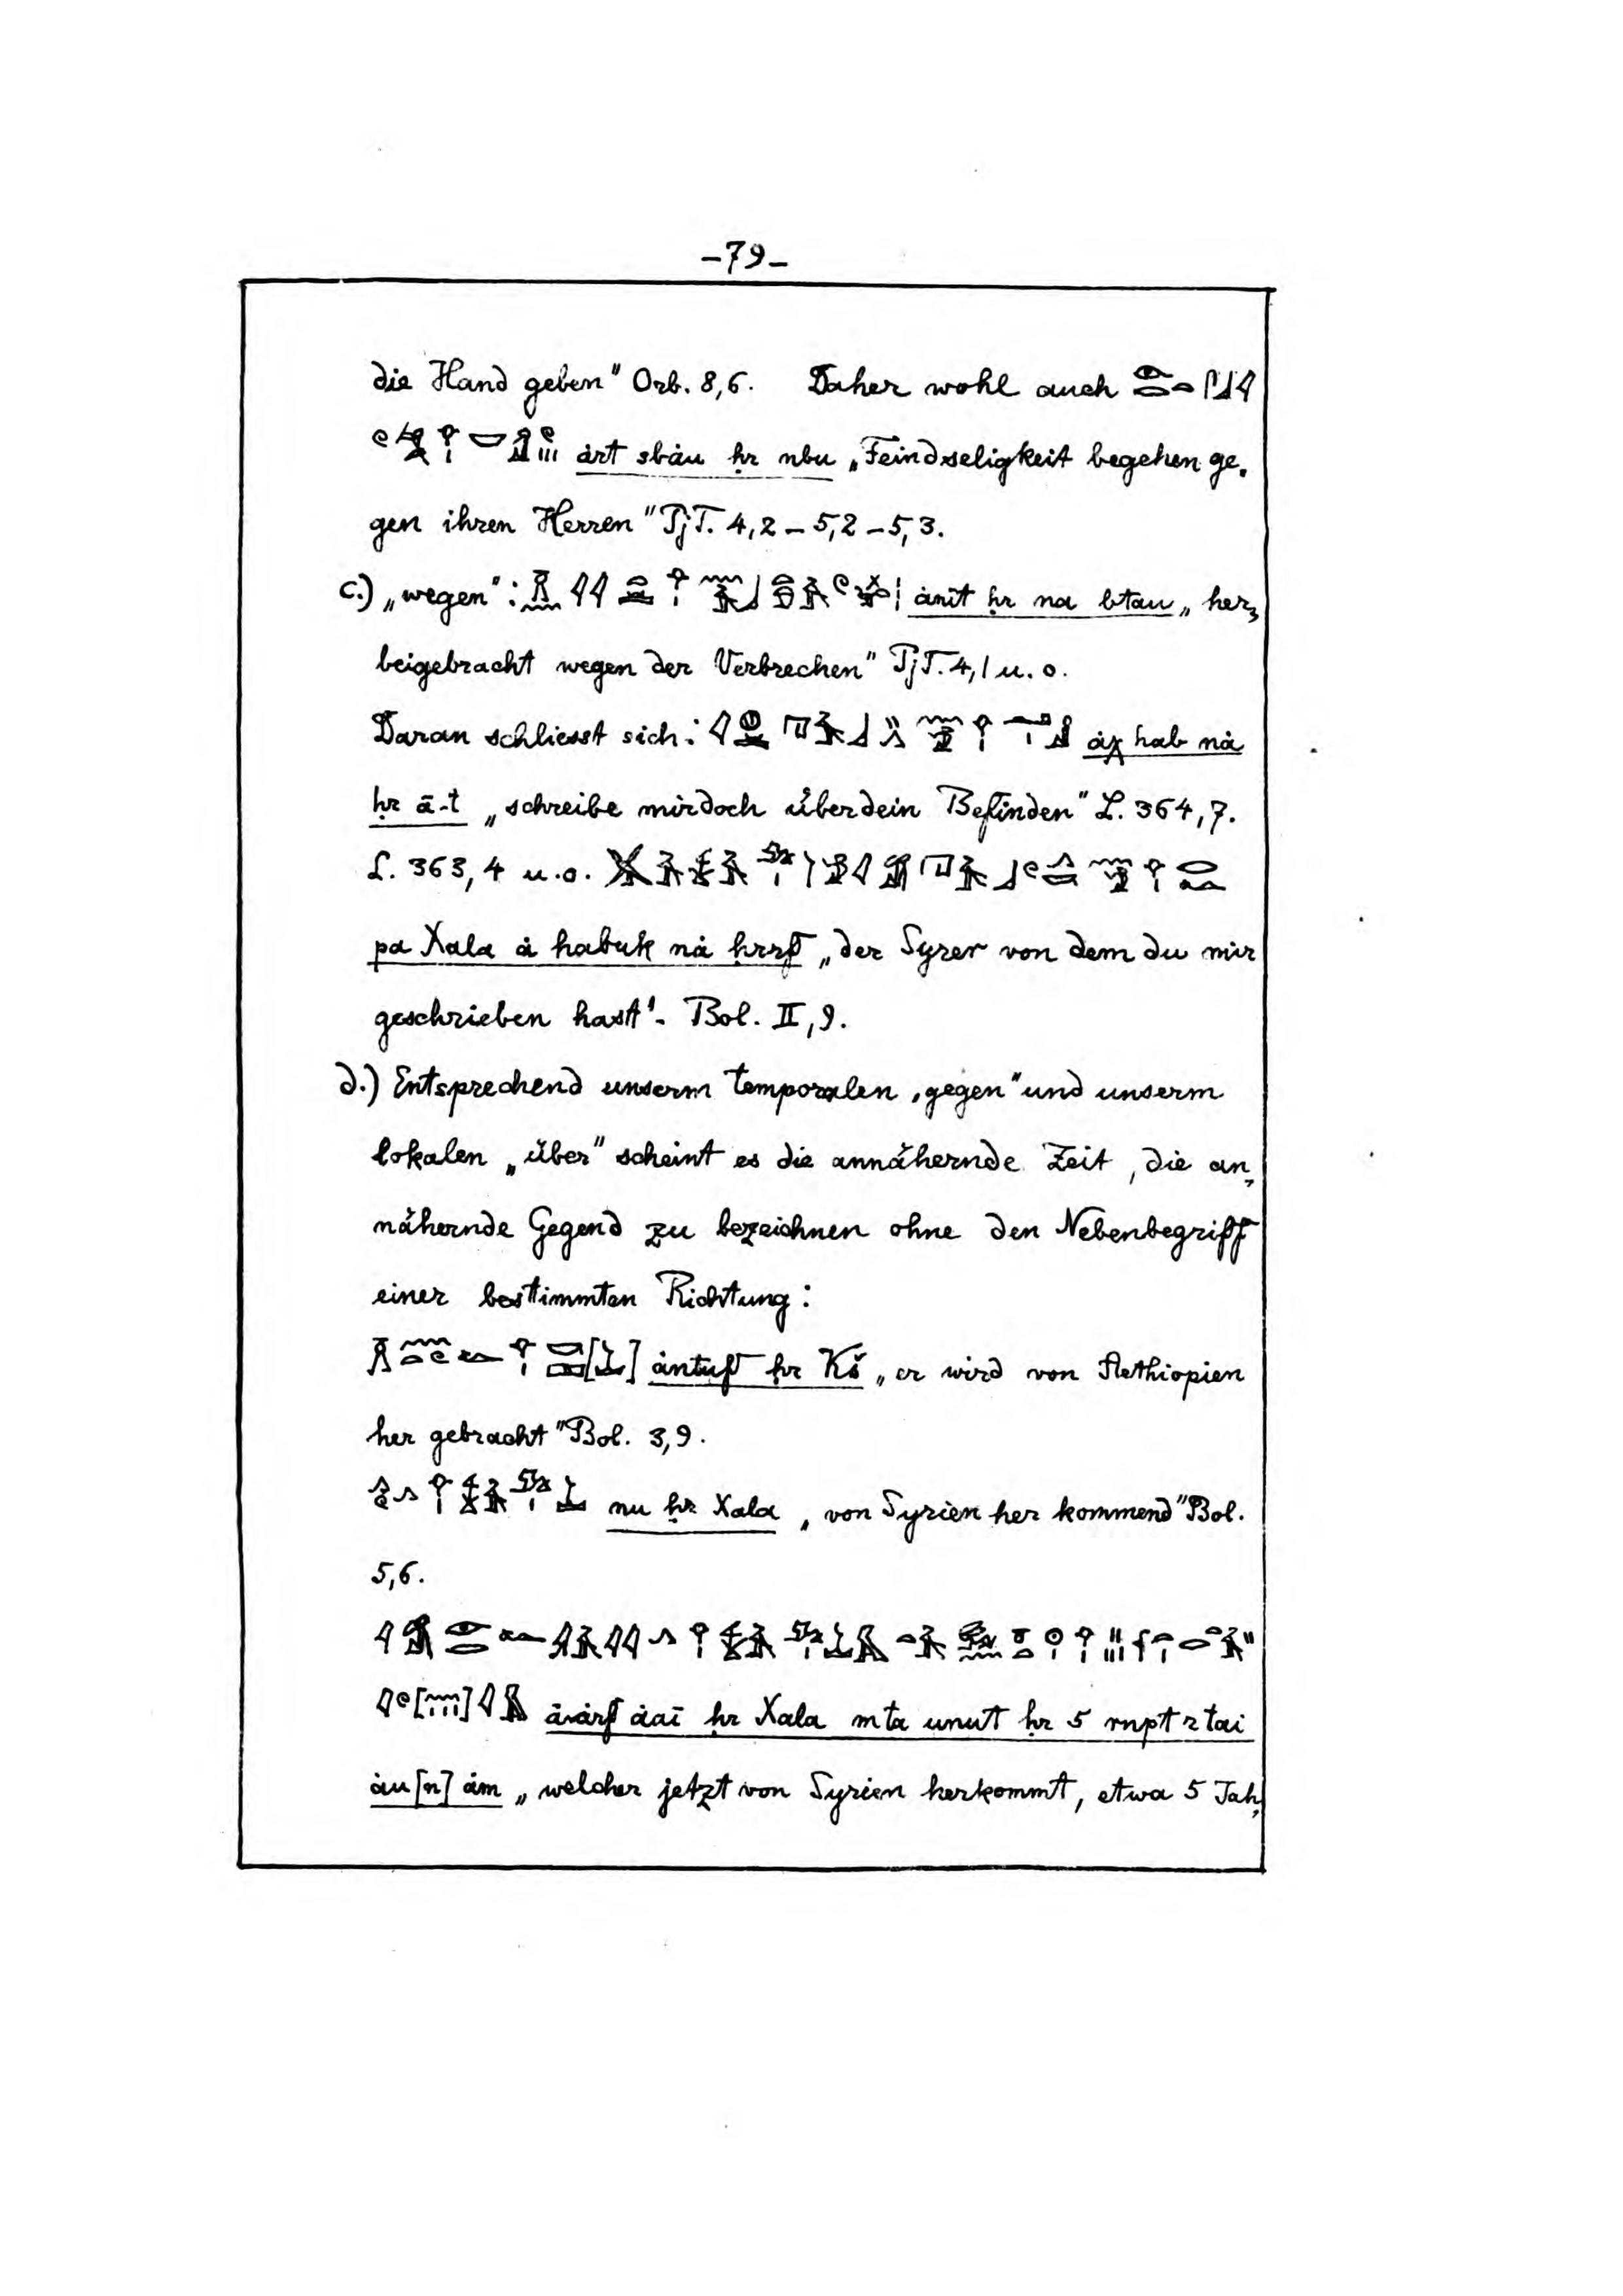 -79-
die Hand geben" Orb. 8,6. Daher wohl auch
ȧrt sbȧu ḥr nbu „Feindseligkeit begehen ge-
gen ihren Herren" PjT. 4,2 – 5,2 – 5,3.
c.) „wegen": ȧnīt ḥr na btau „her-
beigebracht wegen der Verbrechen" PjT. 4,1 u. o.
Daran schliesst sich: ȧχ hab nȧ
ḥr ā-t „schreibe mir doch über dein Befinden" L. 364,7.
L. 363,4 u.o.
pa Xala ȧ habuk nȧ ḥrrf „der Syrer von dem du mir
geschrieben hast". Bol. II,9.
d.) Entsprechend unserm temporalen „gegen" und unserm
lokalen „über" scheint es die annähernde Zeit, die an-
nähernde Gegend zu bezeichnen ohne den Nebenbegriff
einer bestimmten Richtung:
[ ] ȧntuf ḥr Kš „er wird von Aethiopien
her gebracht" Bol. 3,9.
nu ḥr Xala „von Syrien her kommend" Bol.
5,6.
[ ] ȧȧrf ȧaī ḥr Xala mta unut ḥr 5 rnpt r tai
ȧu[n] ȧm „welcher jetzt von Syrien herkommt, etwa 5 Jah-